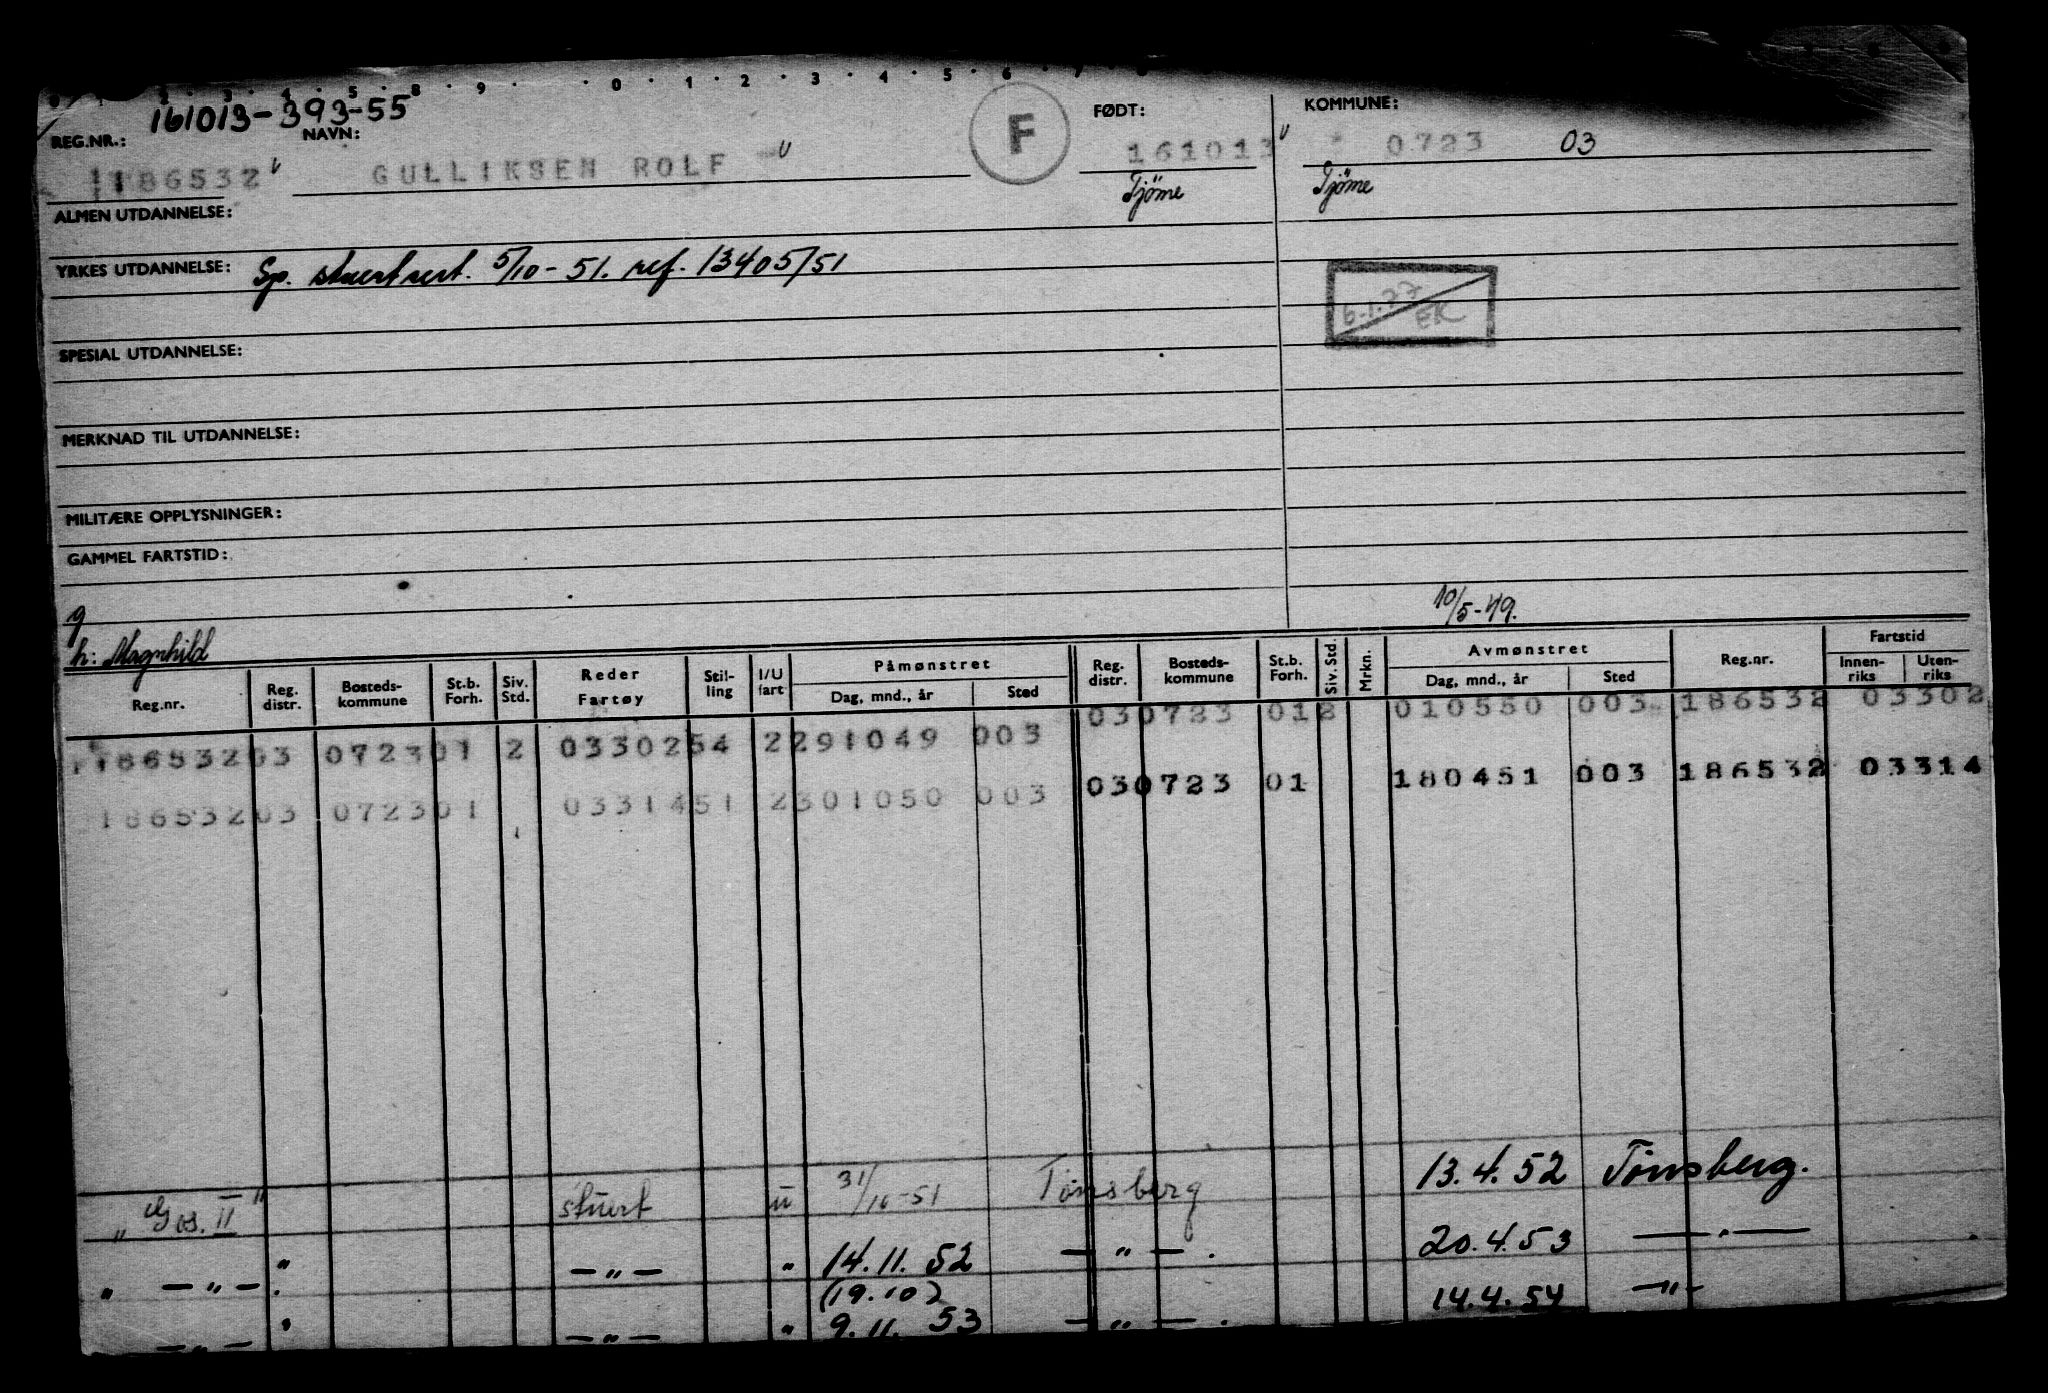 161013-393-55
REG.NR.: NAVN: FØDT: KOMMUNE:
186532 GULLIKSEN ROLF F 161013 0723 03
Tjöme Tjöme
ALMEN UTDANNELSE:
YRKES UTDANNELSE: Sp. stuertsert. 5/10-51. ref. 13405/51
6.1.77 EK
SPESIAL UTDANNELSE:
MERKNAD TIL UTDANNELSE:
MILITÆRE OPPLYSNINGER:
GAMMEL FARTSTID:
g
10/5-49.
h: Magnhild
Reg.nr. Reg. distr. Bosteds-kommune St.b. Forh. Siv. Std. Reder Fartøy Stil-ling I/U fart Påmønstret Dag, mnd., år Sted Reg. distr. Bosteds-kommune St.b. Forh. Siv. Std. Mrkn. Avmønstret Dag, mnd., år Sted Reg.nr. Fartstid Innen-riks Uten-riks
186532 03 0723 01 2 03302 54 2 291049 003 03 0723 01 2 010550 003 186532 03302
186532 03 0723 01 03314 51 2 301050 003 03 0723 01 180451 003 186532 03314
"Gos. II" stuert u 31/10-51 Tønsberg 13.4.52 Tønsberg.
" —"— " —"— " 14.11.52 —"—. 20.4.53 —"—
(19.10)
—"— " —"— " 9.11.53 —"—. 14.4.54 —"—